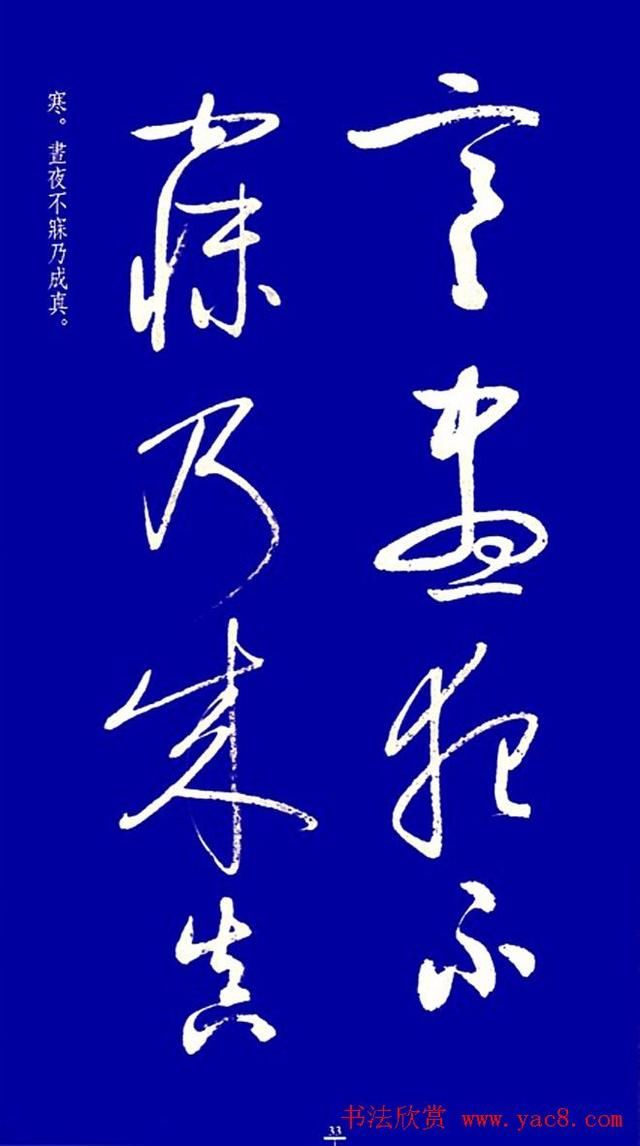 寒晝夜不
寐乃成真
寒。晝夜不寐乃成真。
33
书法欣赏 www.yac8.com